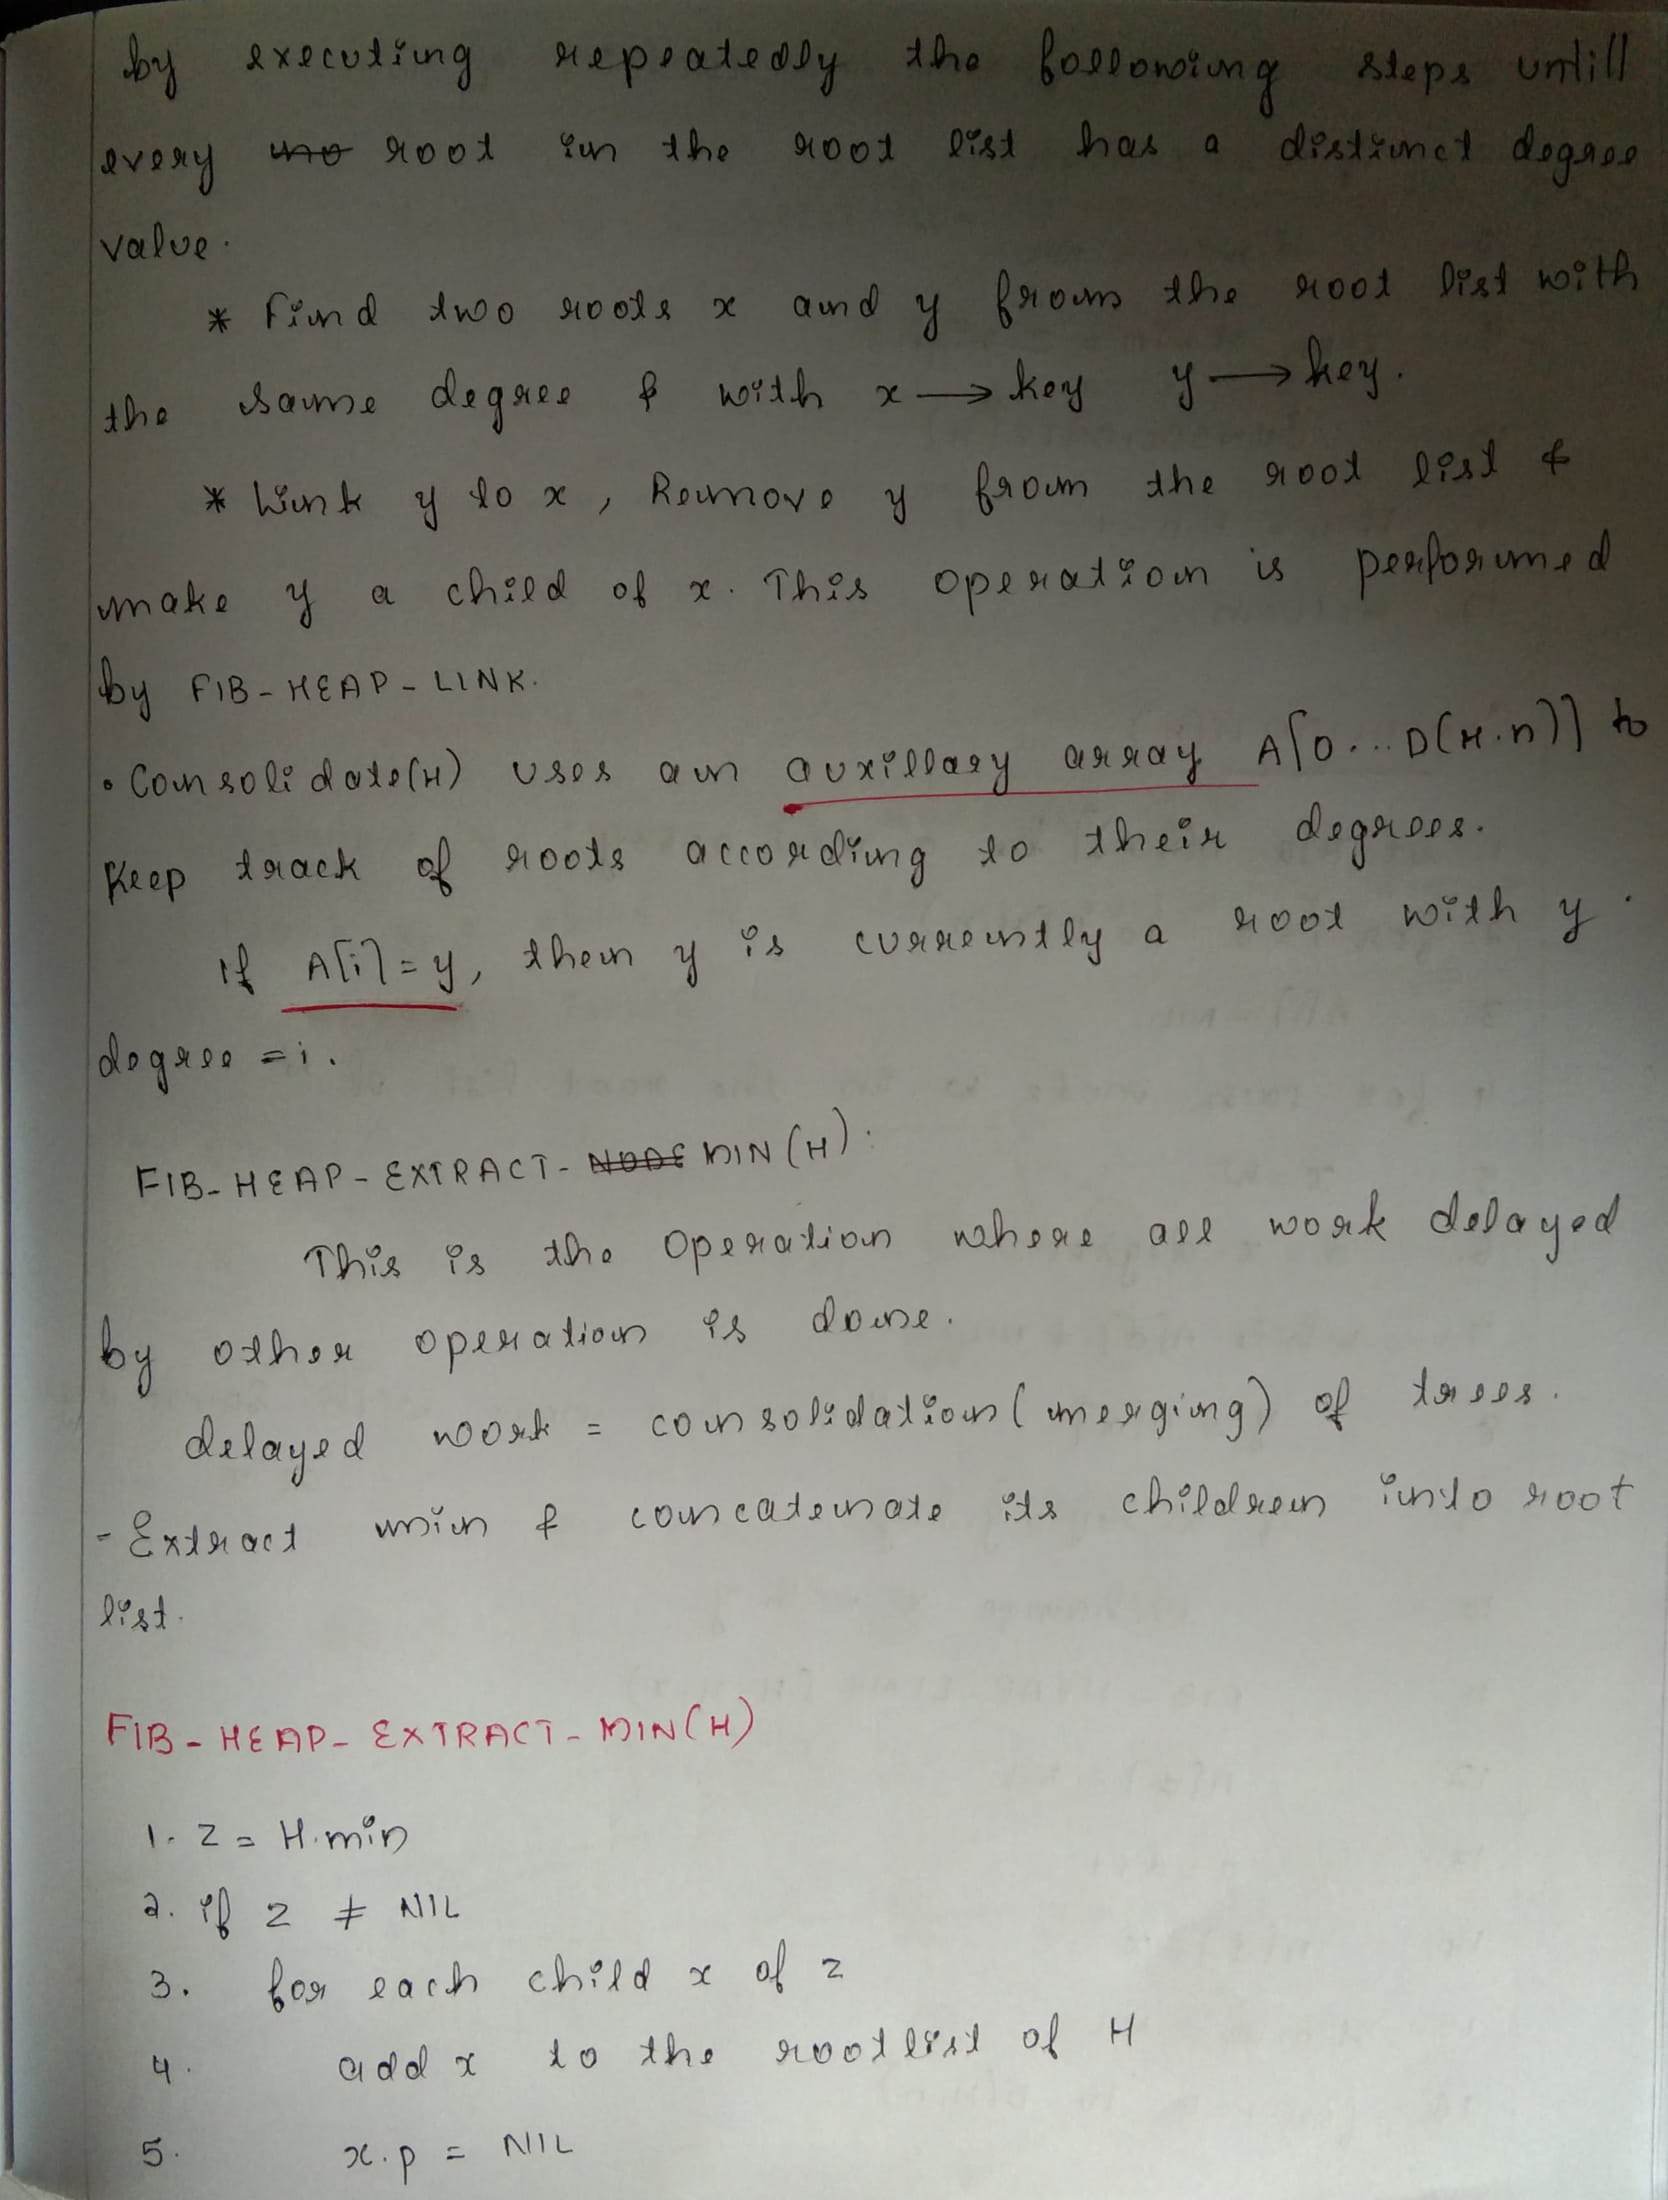 by executing repeatedly the following steps untill
every no root in the root list has a distinct degree
value.
* Find two roots x and y from the root list with
the same degree & with x → key y → key.
* Link y to x, Remove y from the root list &
make y a child of x. This operation is performed
by FIB-HEAP-LINK.
• Consolidate(H) uses an auxillary array A[0...D(H.n)] to
Keep track of roots according to their degrees.
If A[i]=y, then y is currently a root with y.
degree = i.
FIB-HEAP-EXTRACT-NODE MIN(H):
This is the operation where all work delayed
by other operation is done.
delayed work = consolidation(merging) of trees.
- Extract min & concatenate its children into root
list.
FIB-HEAP-EXTRACT-MIN(H)
1. z = H.min
2. if z ≠ NIL
3. for each child x of z
4. add x to the root list of H
5. x.p = NIL